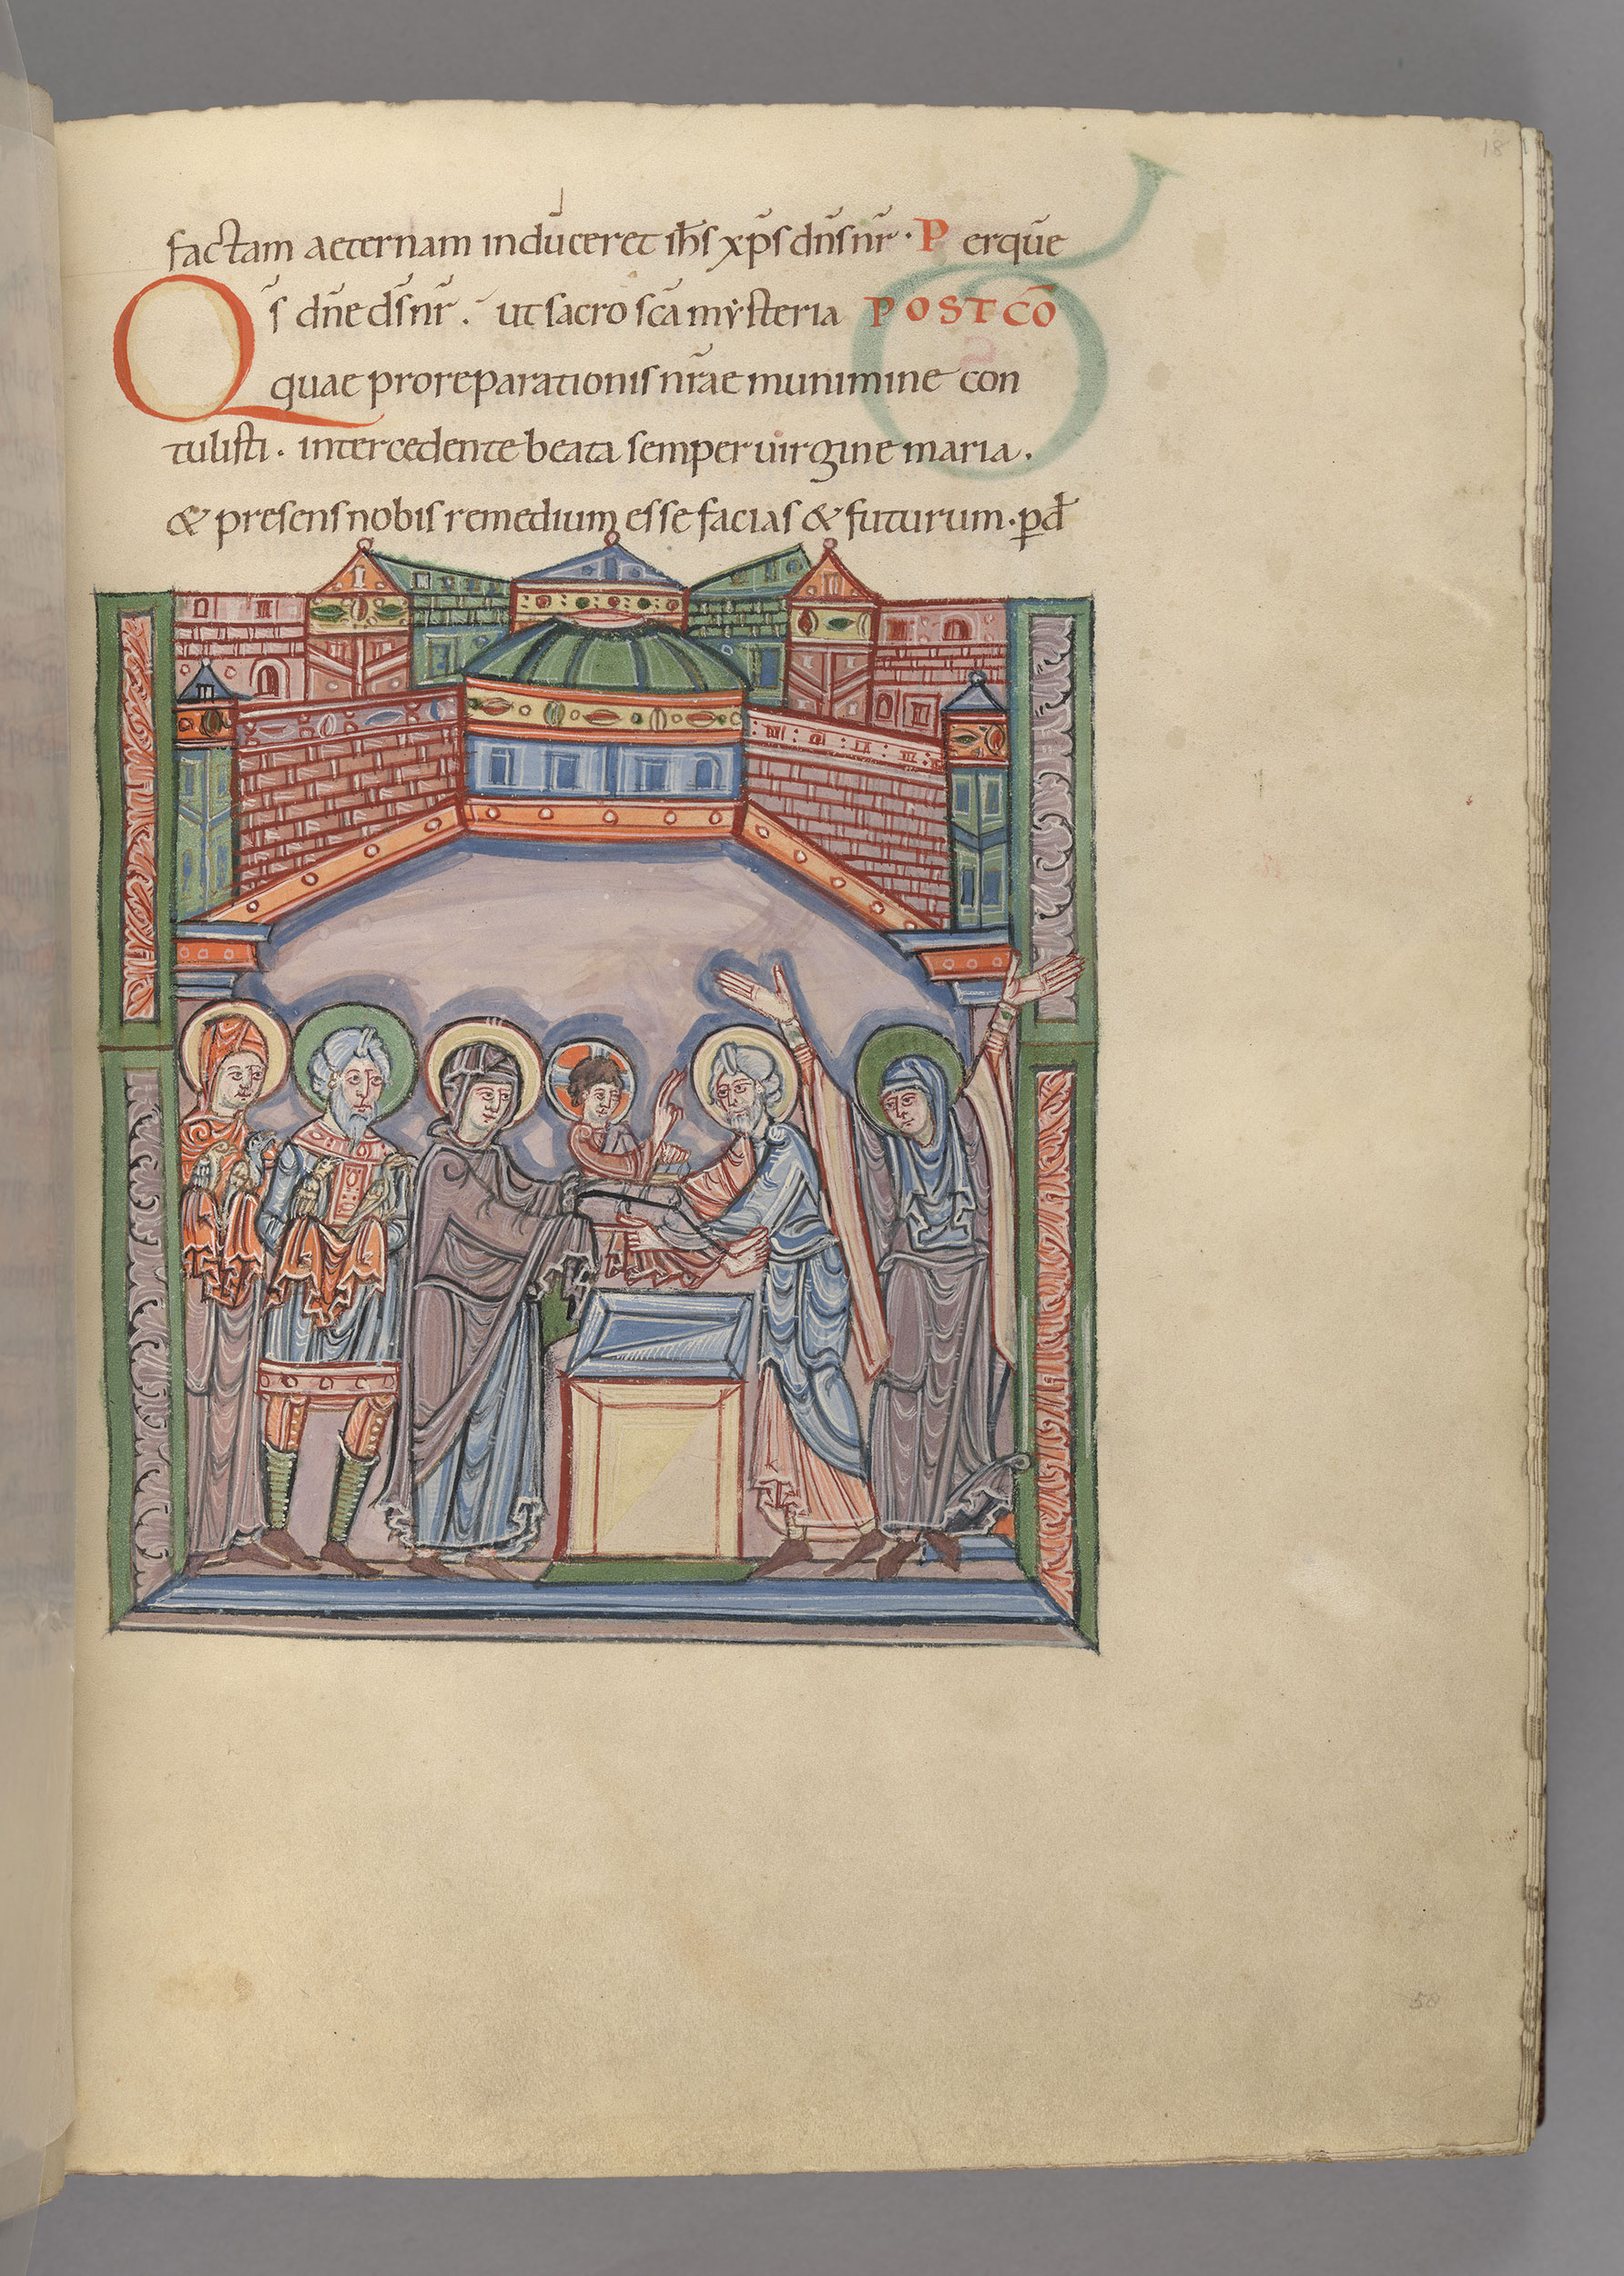 18
factam aeternam induceret ih̅s xp̅s dn̅s nr̅ · P erque̅
Q s̅ dn̅e ds̅ nr̅ . ut sacro sc̅a mẏsteria POST CO̅
quae pro reparationis nr̅ae munimine con
tulisti . intercedente beata semper uirgine maria .
& presens nobis remedium esse facias & futurum · p̲ d̅
50